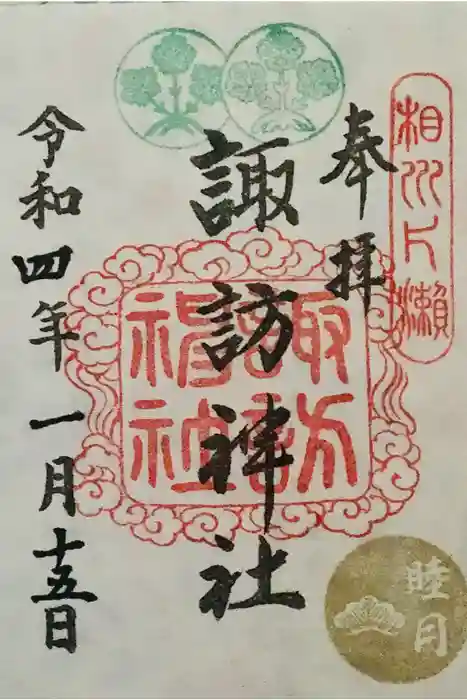 相州片瀬
奉拝
諏訪神社
諏訪神社
令和四年一月十五日
睦月